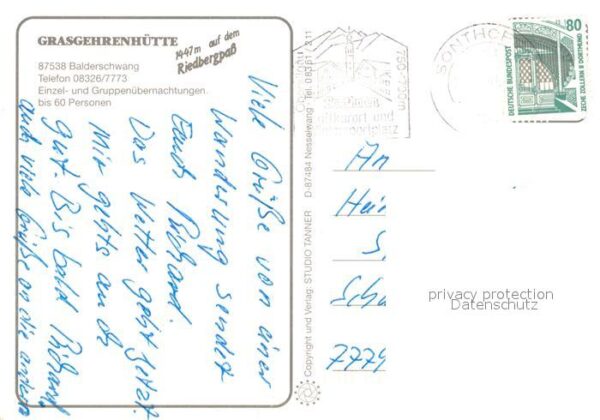 GRASGEHRENHÜTTE
1447 m auf dem
Riedbergpaß
87538 Balderschwang
Telefon 08326/7773
Einzel- und Gruppenübernachtungen
bis 60 Personen
Viele Grüße von einer
Wanderung sendet
Euch Richard.
Das Wetter geht jetzt.
Mir gehts auch
gut. Bis bald Richard
auch viele Grüße an die anderen
Copyright und Verlag: STUDIO TANNER D-87484 Nesselwang · Tel. 08361/
SONTHOF
750-
und
80
DEUTSCHE BUNDESPOST
ZECHE ZOLLERN II DORTMUND
An
privacy protection
Datenschutz